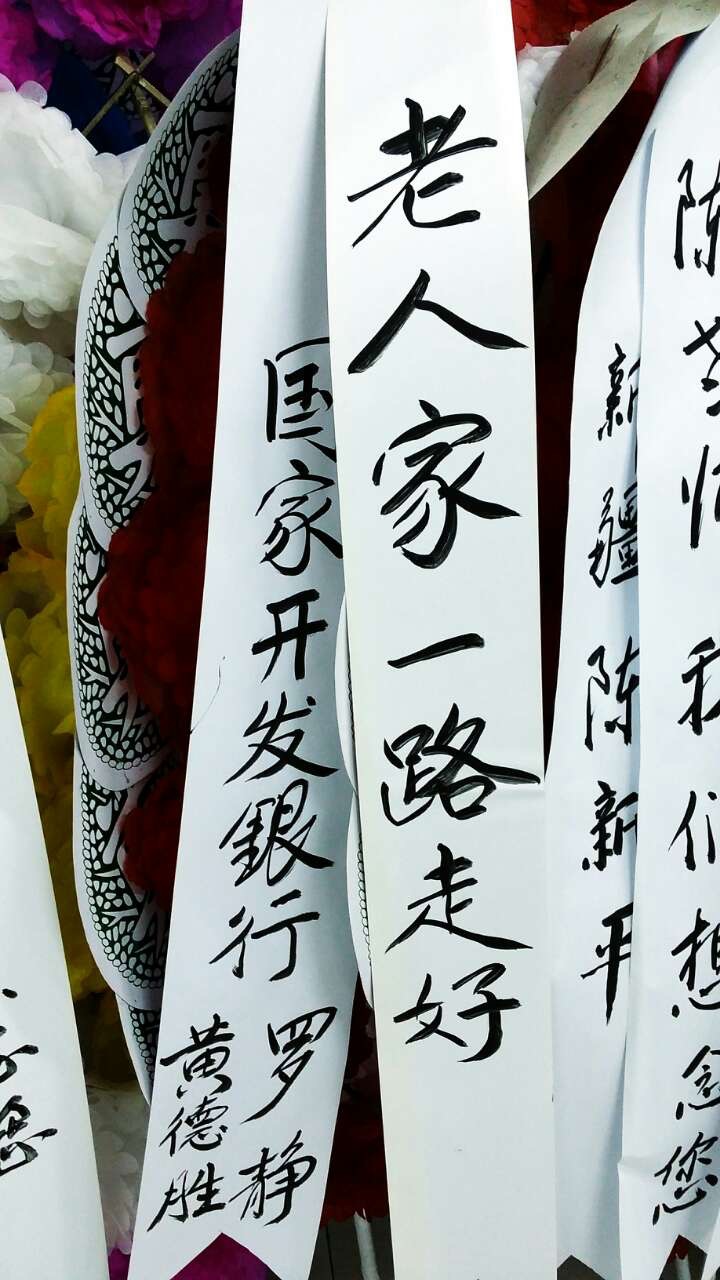 陈老师我们想念您
新疆陈新平
老人家一路走好
国家开发銀行
罗静
黄德胜
念您